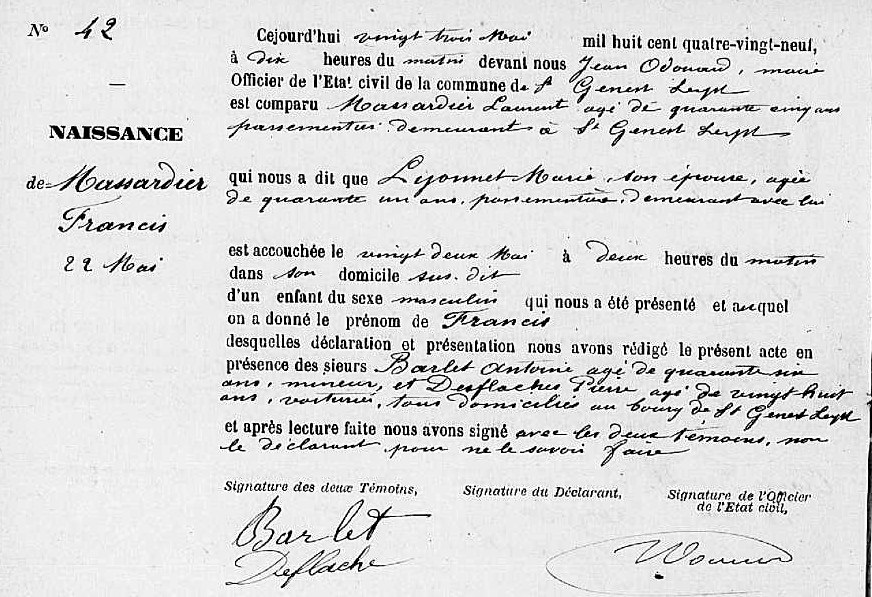 No 42
Cejourd'hui vingt trois Mai mil huit cent quatre-vingt-neuf,
à dix heures du matin devant nous Jean Odouard, maire
Officier de l'Etat civil de la commune de St Genest Lerpt
est comparu Massardier Laurent agé de quarante cinq ans
passementier demeurant à St Genest Lerpt
NAISSANCE
de Massardier
Francis
22 Mai
qui nous a dit que Lyonnet Marie, son épouse, agée
de quarante un ans, passementière, demeurant avec lui
est accouchée le vingt deux Mai à deux heures du matin
dans son domicile sus-dit
d'un enfant du sexe masculin qui nous a été présenté et auquel
on a donné le prénom de Francis
desquelles déclaration et présentation nous avons rédigé le présent acte en
présence des sieurs Barlet Antoine agé de quarante six
ans, mineur, et Desflaches Pierre agé de vingt huit
ans, voiturier, tous domiciliés au bourg de St Genest Lerpt
et après lecture faite nous avons signé avec les deux témoins, non
le déclarant pour ne le savoir faire
Signature des deux Témoins, Signature du Déclarant, Signature de l'Officier
de l'Etat civil,
Barlet
Deflache